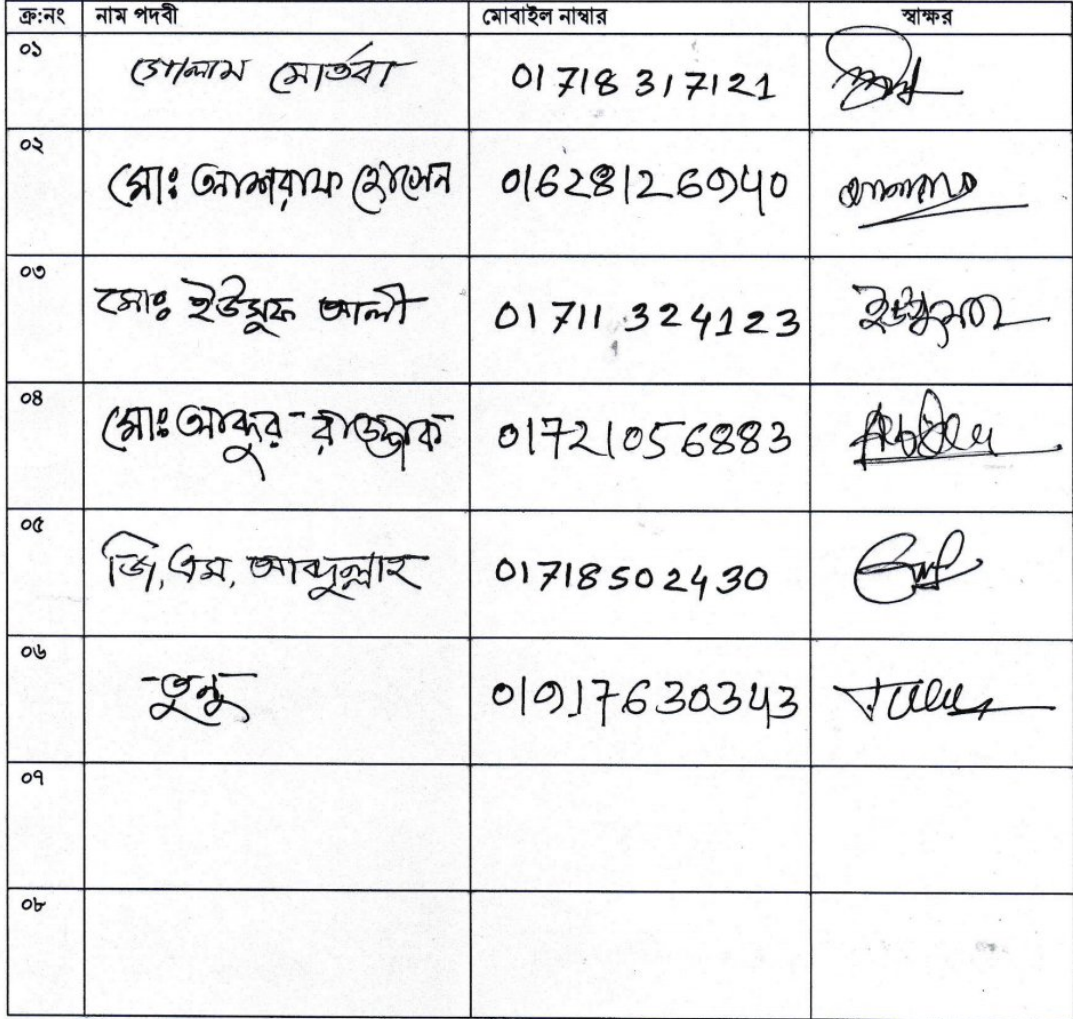 ক্র:নং নাম পদবী মোবাইল নাম্বার স্বাক্ষর
০১ গোলাম মোর্তবা 01718 317121
০২ মোঃ আশরাফ হোসেন 01628126940
০৩ মোঃ ইউসুফ আলী 01711 324123 ইউসুফ
০৪ মোঃ আব্দুর রাজ্জাক 01721056883
০৫ জি,এম, আব্দুল্লাহ 01718502430
০৬ 01917630343
০৭
০৮